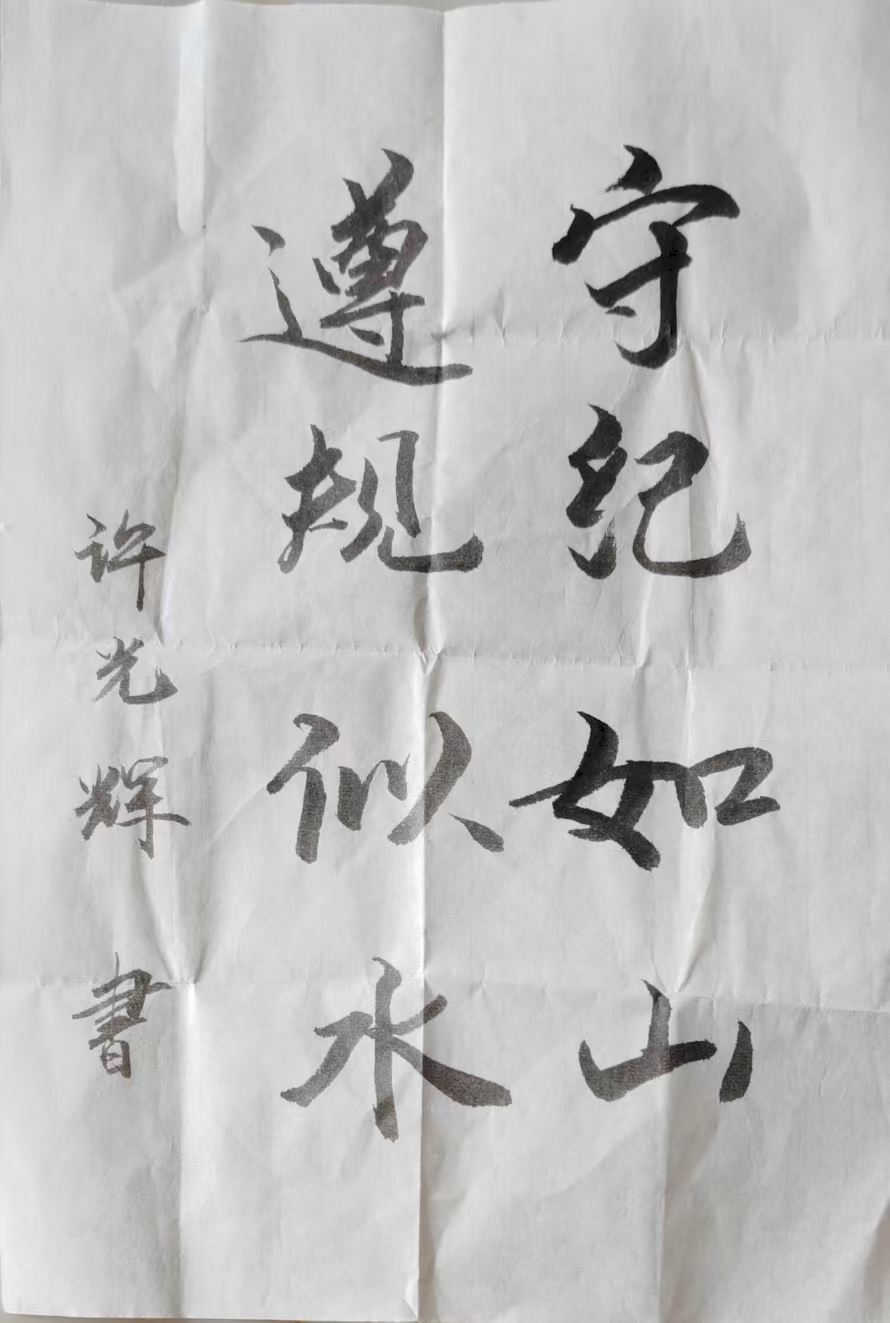 守纪如山
遵规似水
许光辉 書